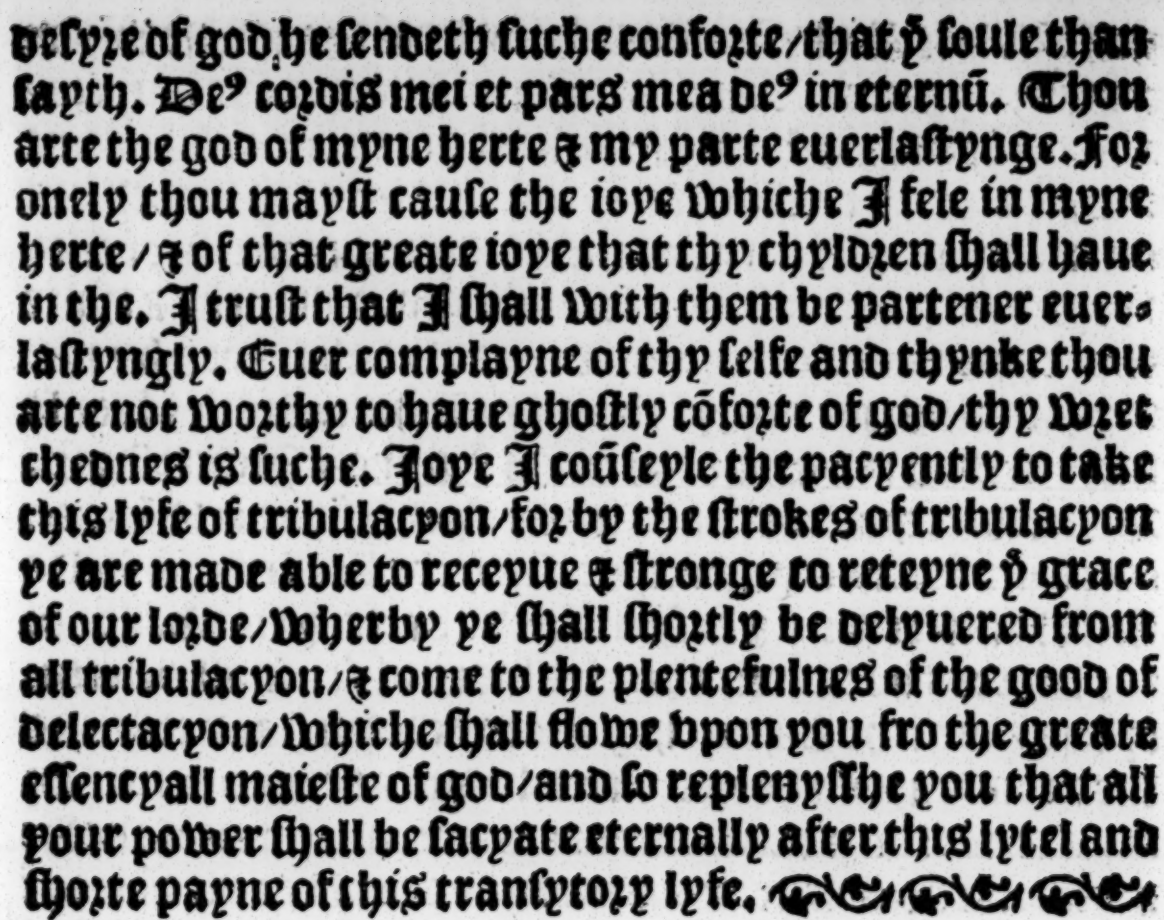 deſyꝛe of god he ſendeth ſuche confoꝛte/that yͤ ſoule than
ſayth. Deꝰ coꝛdis mei et pars mea deꝰ in eternū. Thou
arte the god of myne herte ⁊ my parte euerlaſtynge. Foꝛ
onely thou mayſt cauſe the ioye whiche I fele in myne
herte/⁊ of that greate ioye that thy chyldꝛen ſhall haue
in the. I truſt that I ſhall with them be partener euer⸗
laſtyngly. Euer complayne of thy ſelfe and thynke thou
arte not woꝛthy to haue ghoſtly cōfoꝛte of god/thy wꝛet
chednes is ſuche. Joye I coūſeyle the pacyently to take
this lyfe of tribulacyon/foꝛ by the ſtrokes of tribulacyon
ye are made able to receyue ⁊ ſtronge to reteyne yͤ grace
of our loꝛde/wherby ye ſhall ſhoꝛtly be delyuered from
all tribulacyon/⁊ come to the plentefulnes of the good of
delectacyon/whiche ſhall flowe vpon you fro the greate
eſſencyall maieſte of god/and ſo replenyſſhe you that all
your power ſhall be ſacyate eternally after this lytel and
ſhoꝛte payne of this tranſytoꝛy lyfe.